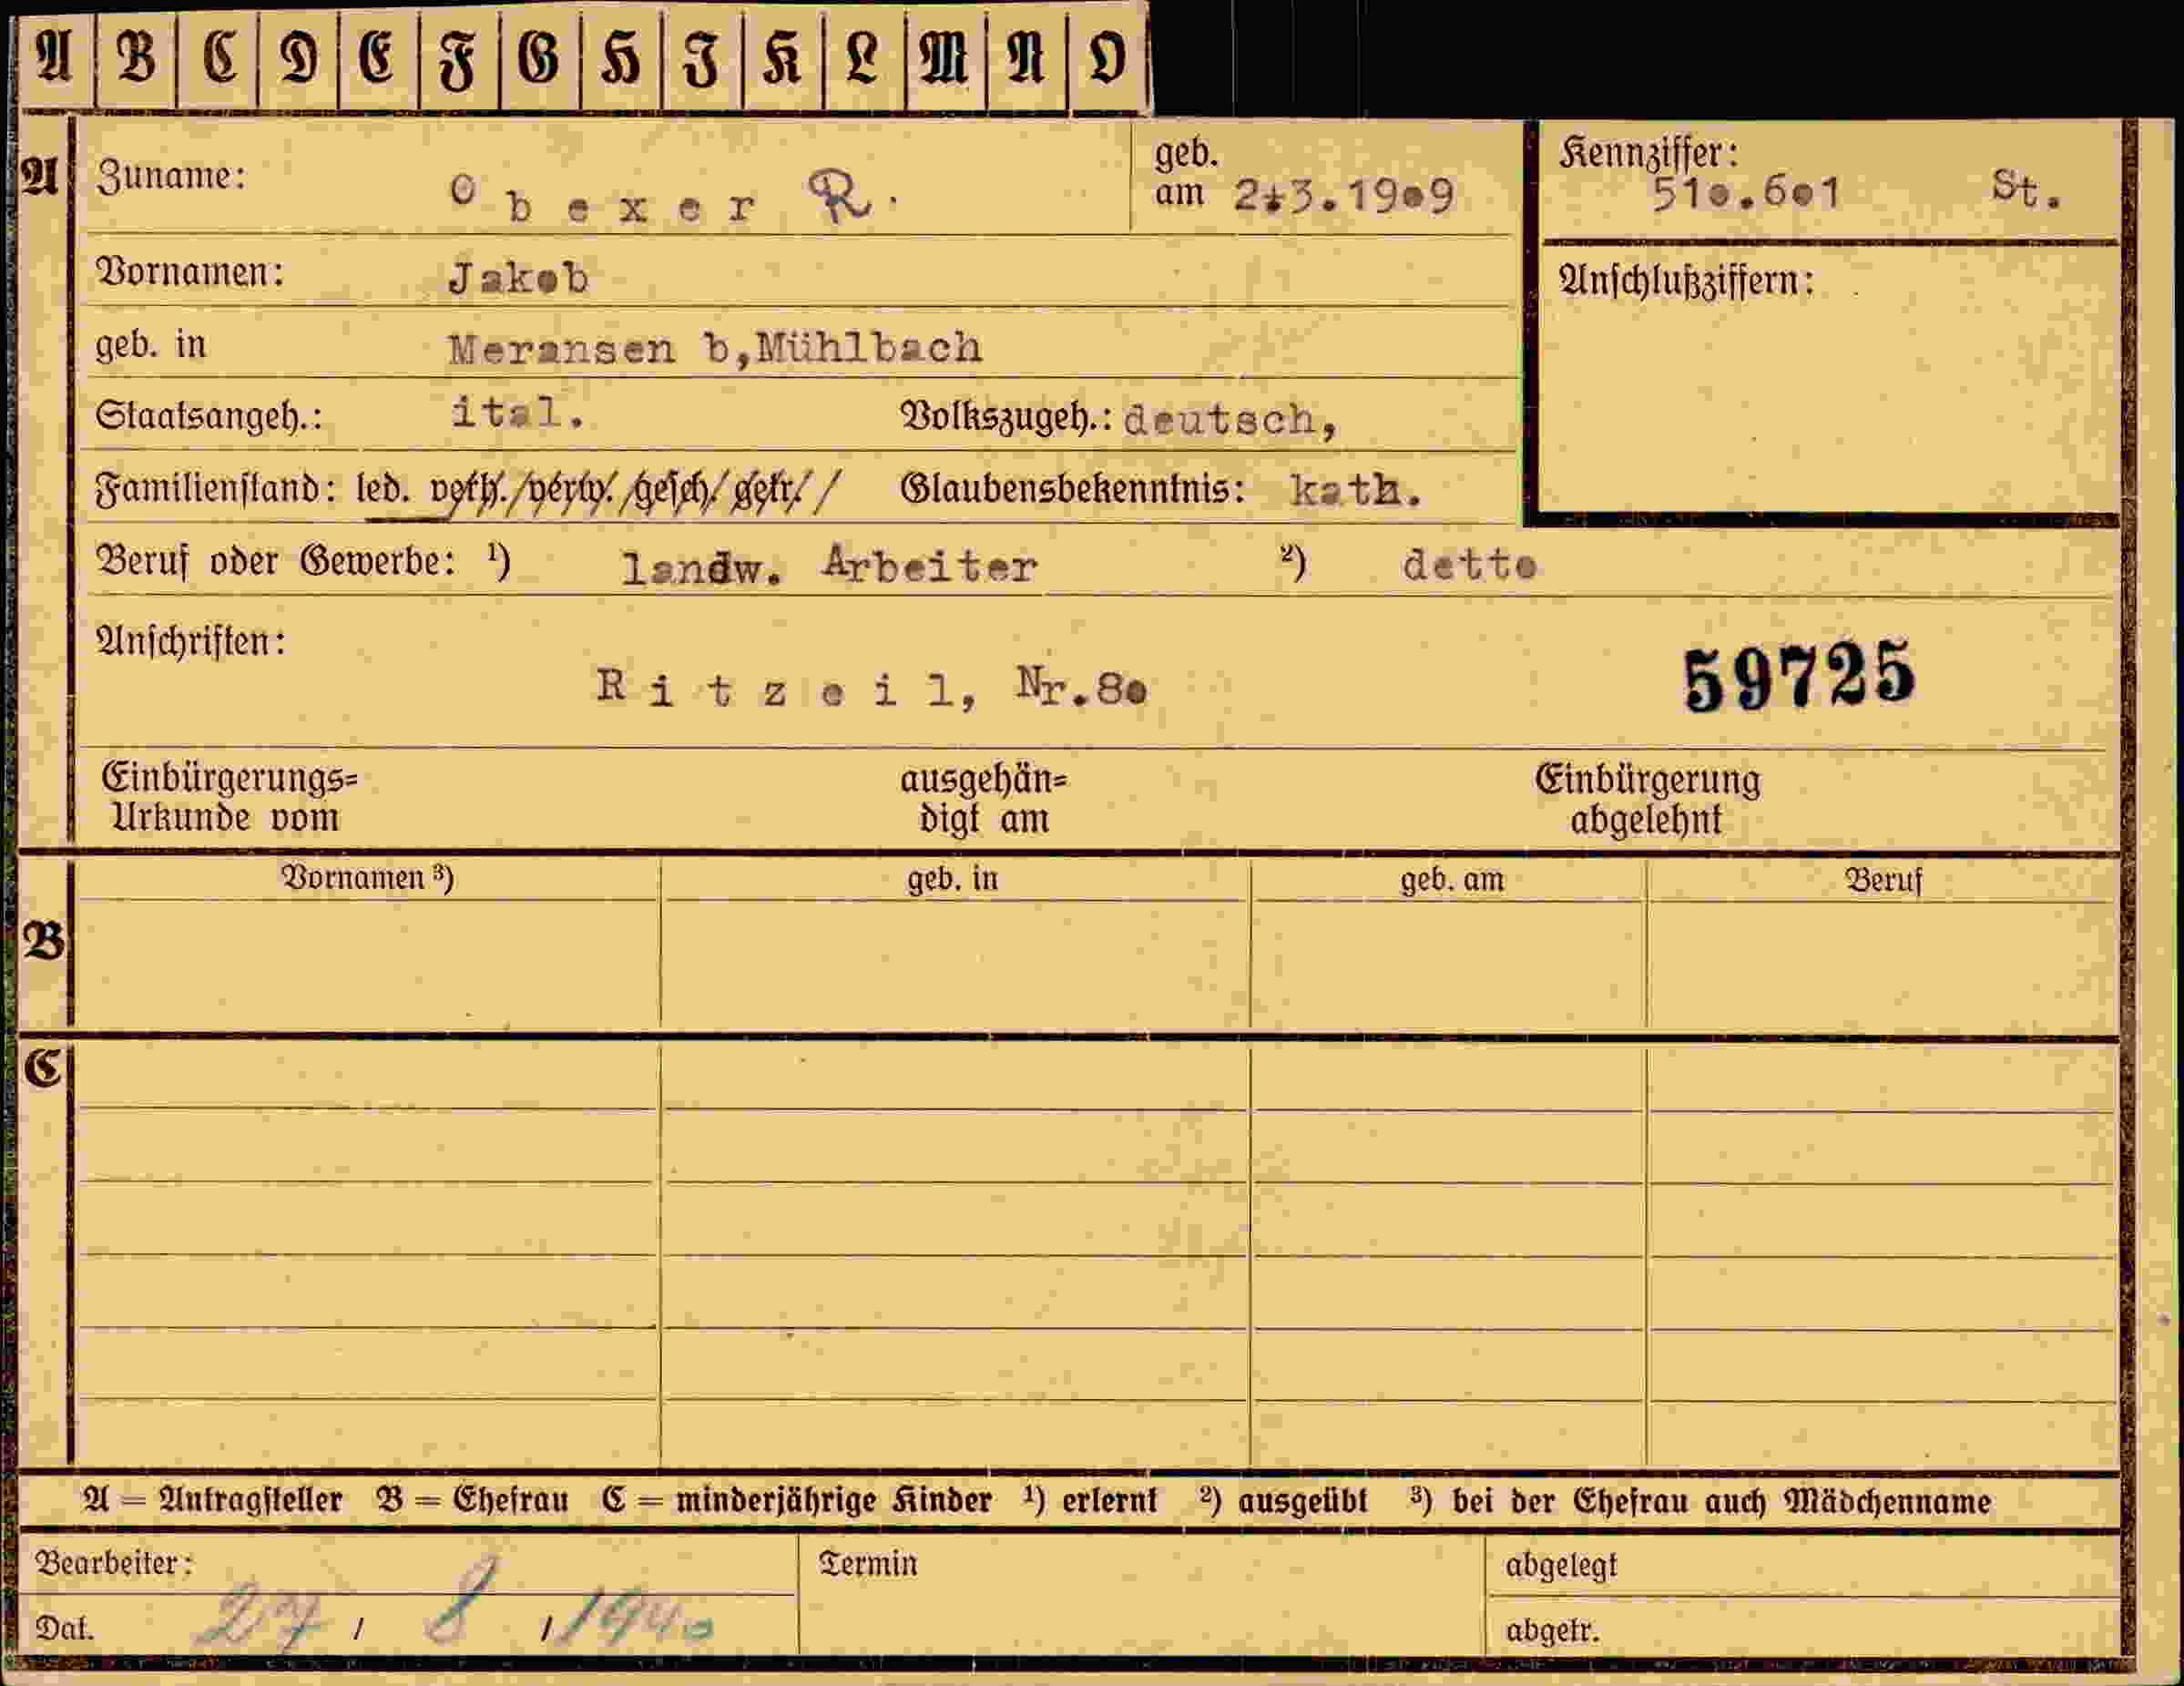 A B C D E F G H I K L M N O
A Zuname: Obexer R. geb. am 2.3.1909 Kennziffer: 510.601 St.
Vornamen: Jakob Anschlußziffern:
geb. in Meransen b,Mühlbach
Staatsangeh.: ital. Volkszugeh.: deutsch,
Familienstand: led. verh./verw./gesch/getr./ Glaubensbekenntnis: kath.
Beruf oder Gewerbe: ¹) landw. Arbeiter ²) detto
Anschriften:
Ritzeil, Nr.80 59725
Einbürgerungs= ausgehän= Einbürgerung
Urkunde vom digt am abgelehnt
Vornamen ³) geb. in geb. am Beruf
B
C
A = Antragsteller B = Ehefrau C = minderjährige Kinder ¹) erlernt ²) ausgeübt ³) bei der Ehefrau auch Mädchenname
Bearbeiter: Termin abgelegt
Dat. 27 / 8 / 1940 abgetr.